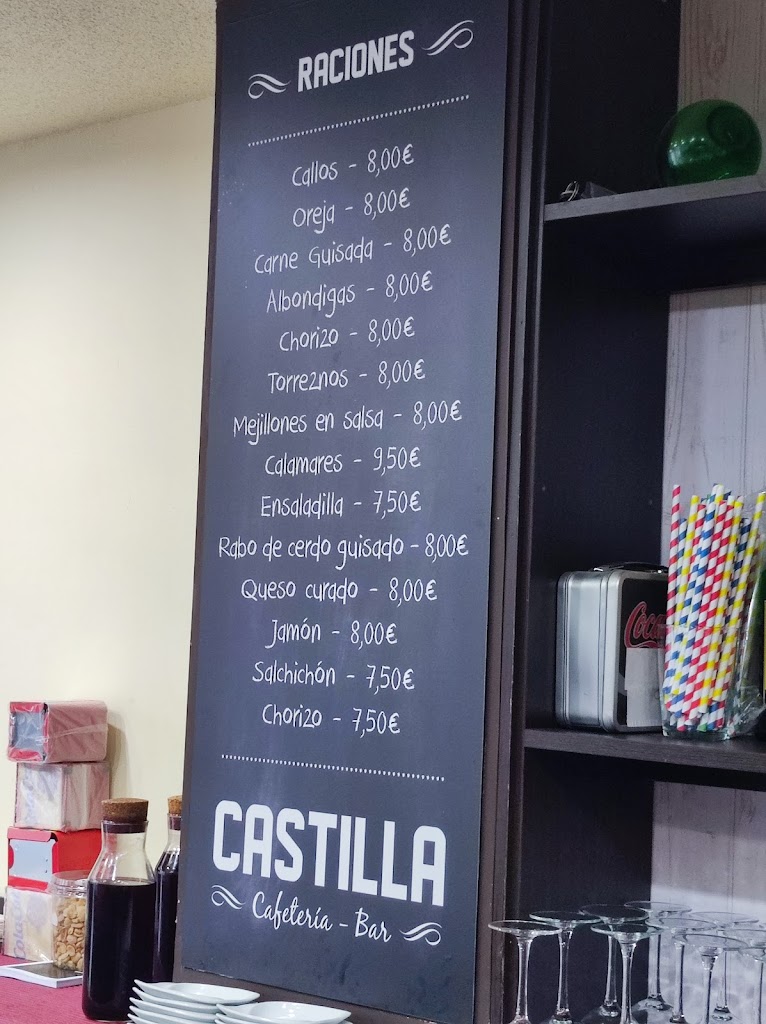 RACIONES
Callos - 8,00€
Oreja - 8,00€
Carne Guisada - 8,00€
Albondigas - 8,00€
Chorizo - 8,00€
Torreznos - 8,00€
Mejillones en salsa - 8,00€
Calamares - 9,50€
Ensaladilla - 7,50€
Rabo de cerdo guisado - 8,00€
Queso curado - 8,00€
Jamón - 8,00€
Salchichón - 7,50€
Chorizo - 7,50€
CASTILLA
Cafetería - Bar